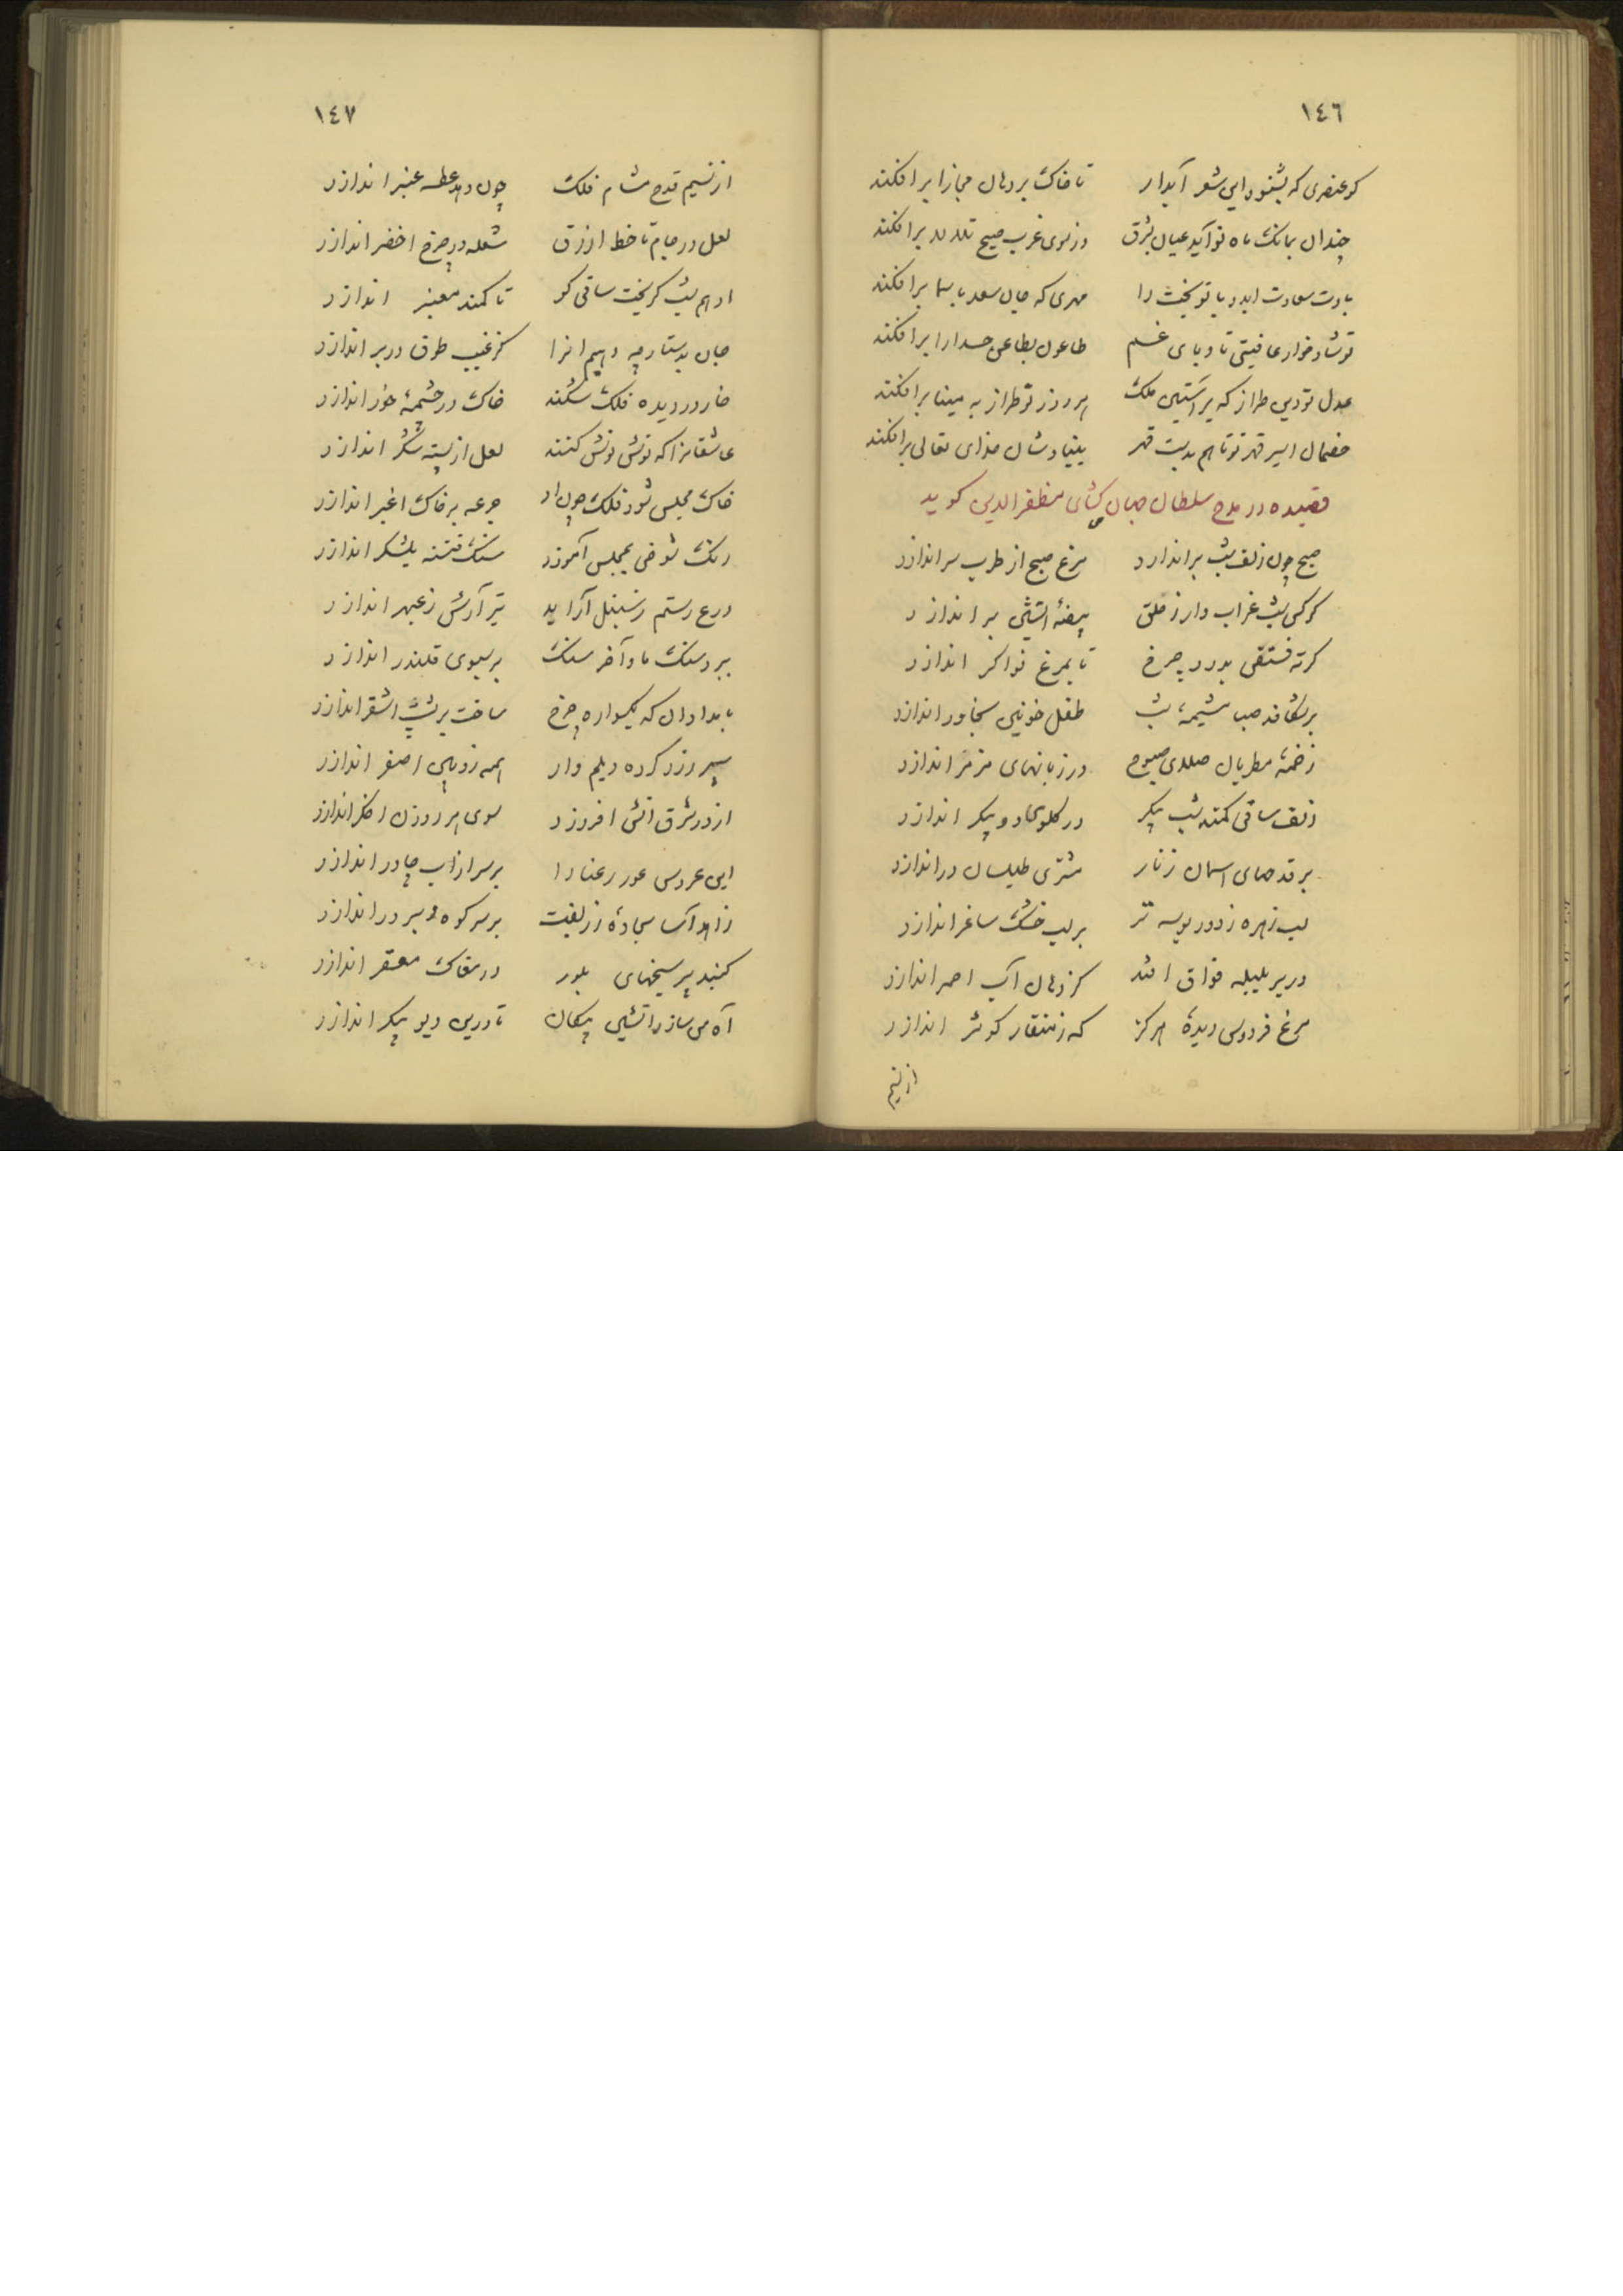 ١٤٦
كو عنصرى كه بشنود اين شعر آبدار تا خاك بر دهان مجازا برافكند
چندان بمانكه ماه نو آيد عيان بشرق وز سوى غرب صبح تلالا برافكند
بادت سعادت ابد و با تو بخت را مهرى كه جان سعد باسما برافكند
تو شاد خوار عافيتى تا وباى غم طاعون بطاعن حسد ارا برافكند
عدل تو دين طراز كه بر آستين ملك هر روز نو طراز به مينا برافكند
خصمان اسير قهر تو تا هم بدست قهر بنيادشان خداى تعالى برافكند
قصيده در مدح سلطان جهان كشاى مظفر الدين كويد
صبح چون زلف شب براندازد مرغ صبح از طرب سر اندازد
كركس شب غراب وار ز حلق بيضهٔ آتشين براندازد
كرته فستقى بدرد چرخ تا بمرغ نواكر اندازد
برشكافد صبا مشيمهٔ شب طفل خونين بخاور اندازد
زخمهٔ مطربان صلاى صبوح در زبانهاى مزمر اندازد
زلف ساقى كمند شب پيكر در كلوى دو پيكر اندازد
بر قدحهاى آسمان زنار مشترى طيلسان در اندازد
لب زهره ز دور بوسه تر بر لب خشك ساغر اندازد
در بر بلبله فواق افتد كز دهان آب احمر اندازد
مرغ فردوس ديدهٔ هركز كه ز منقار كوثر اندازد
از نسيم
١٤٧
از نسيم قدح مشام فلك چون دهد عطسه عنبر اندازد
لعل در جام تا خط ازرق شعله در چرخ اخضر اندازد
ادهم شب كريخت ساقى كو تا كمند معنبر اندازد
جان بدستارچه دهيم انرا كز غبب طوق در بر اندازد
خار در ديده فلك شكند خاك در چشمهٔ خور اندازد
عاشقانرا كه نوش نوش كنند لعل از پسته شكر اندازد
خاك مجلس شود فلك چون او جرعه بر خاك اغبر اندازد
رنك شوخى بمجلس آموزد سنك فتنه بلشكر اندازد
درع رستم ز سنبل آرايد تير آرش ز عبهر اندازد
ببرد سنك ما و آخر سنك بر سبوى قلندر اندازد
بامدادان كه يكسواره چرخ ساخت بر پشت اشقر اندازد
سپر زرد كرده ديلم وار همه زوبين اصفر اندازد
از در شرق آتشى افروزد سوى هر روزن اخكر اندازد
اين عروس عور رعنا را بر سر از آب چادر اندازد
زاهد آسا سجادهٔ زربفت بر سر كوه و بر در اندازد
كنبد پر سيخهاى بلور در مغاك مقعر اندازد
آه من سازد آتشين پيكان تا درين ديو پيكر اندازد